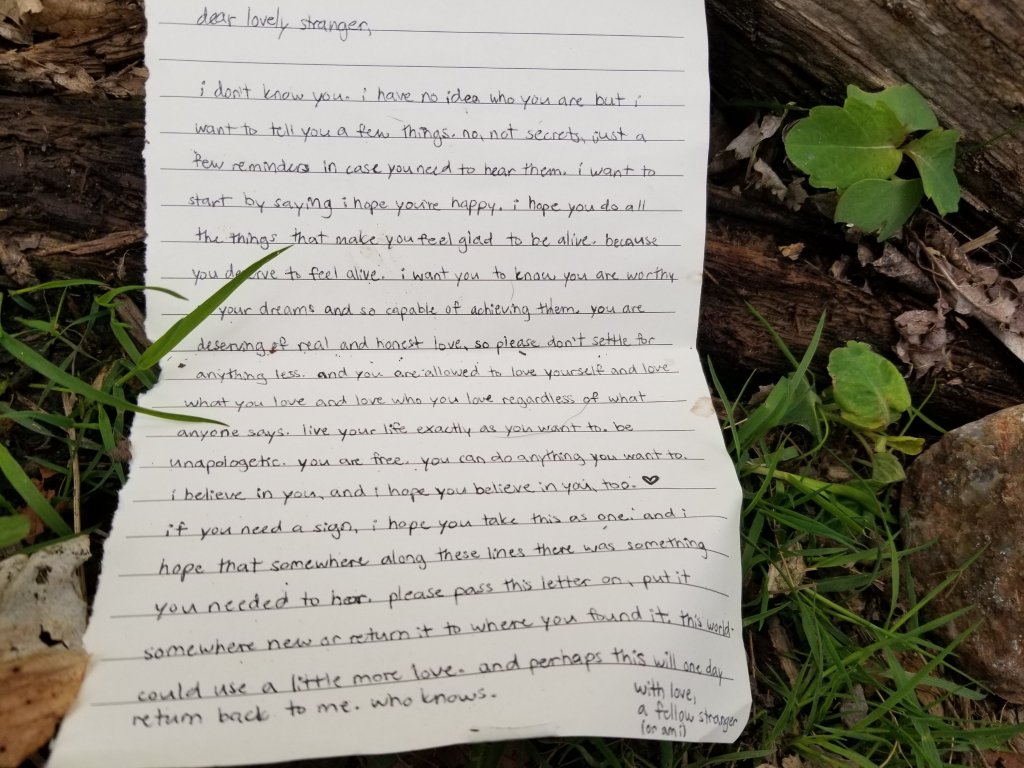 dear lovely stranger,
i don't know you. i have no idea who you are but i
want to tell you a few things. no, not secrets, just a
few reminders in case you need to hear them. i want to
start by saying i hope you're happy. i hope you do all
the things that make you feel glad to be alive. because
you deserve to feel alive. i want you to know you are worthy
your dreams and so capable of achieving them. you are
deserving of real and honest love, so please don't settle for
anything less. and you are allowed to love yourself and love
what you love and love who you love regardless of what
anyone says. live your life exactly as you want to. be
unapologetic. you are free. you can do anything you want to.
i believe in you, and i hope you believe in you, too. ♥
if you need a sign, i hope you take this as one. and i
hope that somewhere along these lines there was something
you needed to hear. please pass this letter on, put it
somewhere new or return it to where you found it. this world
could use a little more love. and perhaps this will one day
return back to me. who knows.
with love,
a fellow stranger
(or am i)